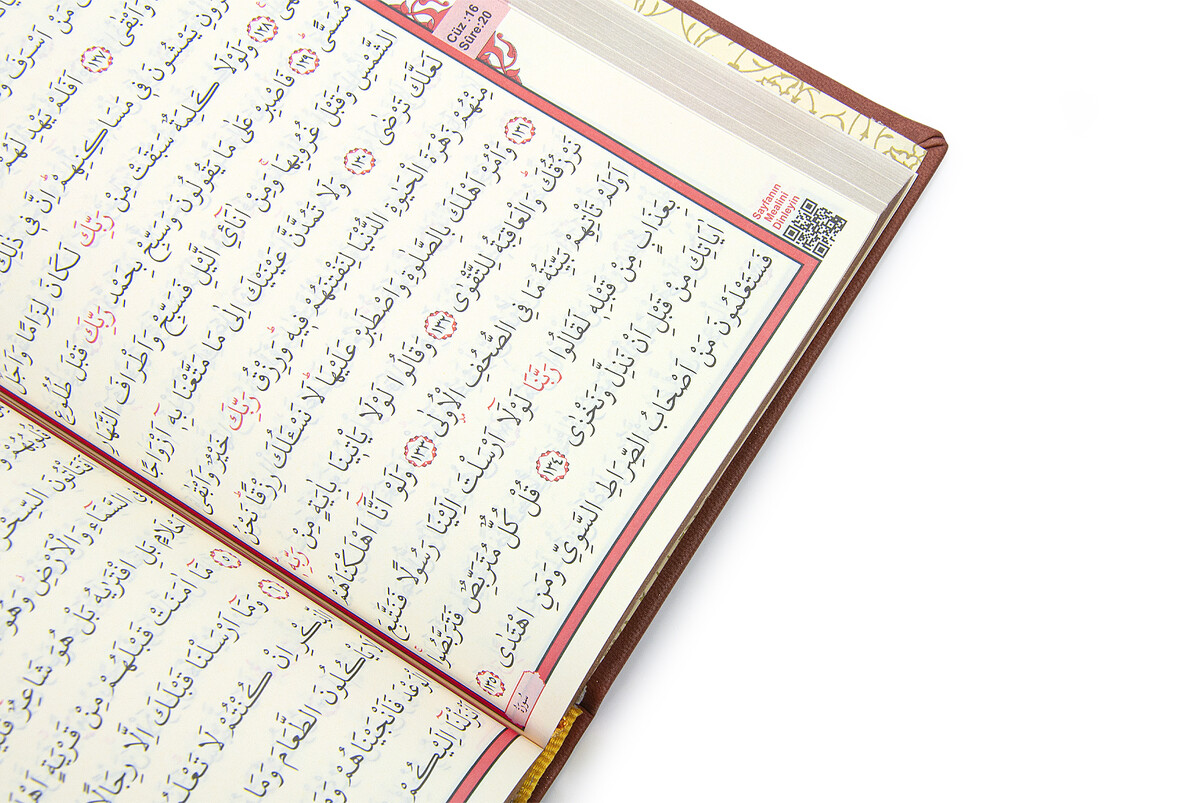 Cüz :16
Sûre:20
مَنْ اَسْرَفَ
وَاَبْقٰى ﴿١٢٧﴾ اَفَلَمْ يَهْدِ لَهُمْ
يَمْشُونَ ف۪ي مَسَاكِنِهِمْ اِنَّ ف۪ي ذٰلِكَ
﴿١٢٨﴾ وَلَوْلَا كَلِمَةٌ سَبَقَتْ مِنْ رَبِّكَ لَكَانَ لِزَامًا وَاَجَلٌ
مُسَمًّى ﴿١٢٩﴾ فَاصْبِرْ عَلٰى مَا يَقُولُونَ وَسَبِّحْ بِحَمْدِ رَبِّكَ قَبْلَ طُلُوعِ
الشَّمْسِ وَقَبْلَ غُرُوبِهَا وَمِنْ اٰنَٓائِ الَّيْلِ فَسَبِّحْ وَاَطْرَافَ النَّهَارِ
لَعَلَّكَ تَرْضٰى ﴿١٣٠﴾ وَلَا تَمُدَّنَّ عَيْنَيْكَ اِلٰى مَا مَتَّعْنَا بِه۪ٓ اَزْوَاجًا
مِنْهُمْ زَهْرَةَ الْحَيٰوةِ الدُّنْيَا لِنَفْتِنَهُمْ ف۪يهِ وَرِزْقُ رَبِّكَ خَيْرٌ وَاَبْقٰى
﴿١٣١﴾ وَأْمُرْ اَهْلَكَ بِالصَّلٰوةِ وَاصْطَبِرْ عَلَيْهَا لَا نَسْـَٔلُكَ رِزْقًا نَحْنُ
نَرْزُقُكَ وَالْعَاقِبَةُ لِلتَّقْوٰى ﴿١٣٢﴾ وَقَالُوا لَوْلَا يَأْت۪ينَا بِاٰيَةٍ مِنْ رَبِّه۪
اَوَلَمْ تَأْتِهِمْ بَيِّنَةُ مَا فِي الصُّحُفِ الْاُو۫لٰى ﴿١٣٣﴾ وَلَوْ اَنَّٓا اَهْلَكْنَاهُمْ
بِعَذَابٍ مِنْ قَبْلِه۪ لَقَالُوا رَبَّنَا لَوْلَٓا اَرْسَلْتَ اِلَيْنَا رَسُولًا فَنَتَّبِعَ
اٰيَاتِكَ مِنْ قَبْلِ اَنْ نَذِلَّ وَنَخْزٰى ﴿١٣٤﴾ قُلْ كُلٌّ مُتَرَبِّصٌ فَتَرَبَّصُوا
فَسَتَعْلَمُونَ مَنْ اَصْحَابُ الصِّرَاطِ السَّوِيِّ وَمَنِ اهْتَدٰى ﴿١٣٥﴾
Sayfanın
Mealini
Dinleyin
السِّحْرَ
السَّمَٓاءِ وَالْاَرْضِ وَهُوَ
اَحْلَامٍ بَلِ افْتَرٰيهُ بَلْ هُوَ شَاعِرٌ
﴿٥﴾ مَٓا اٰمَنَتْ قَبْلَهُمْ مِنْ قَرْيَةٍ
﴿٦﴾ وَمَٓا اَرْسَلْنَا قَبْلَكَ اِلَّا رِجَالًا
الذِّكْرِ اِنْ كُنْتُمْ لَا
يَأْكُلُونَ الطَّعَامَ وَمَا
الْوَعْدَ فَاَنْجَيْنَاهُمْ
اَنْزَلْنَٓا اِلَيْكُمْ